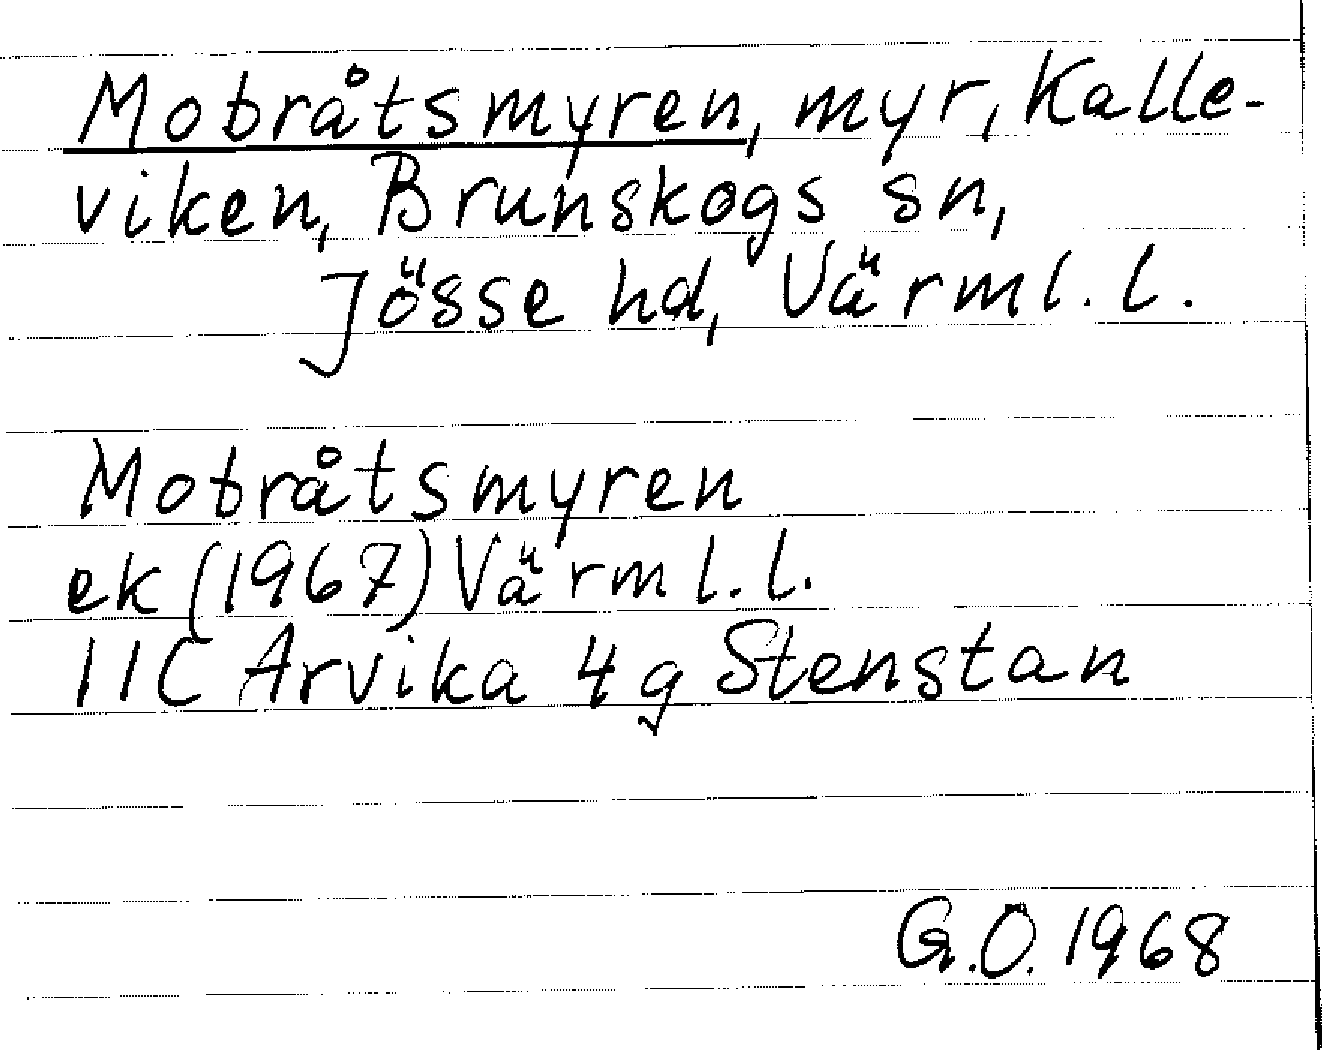 Mobråtsmyren, myr, Kalle-
viken, Brunskogs sn,
Jösse hd, Värml. l.
Mobråtsmyren
ek (1967) Värml. l.
11C Arvika 4g Stenstan
G.Ö. 1968